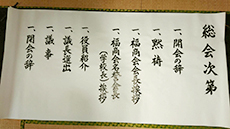 総会次第
一、開会の辞
一、黙祷
一、福商会会長挨拶
一、福商会名誉会長
(学校長)挨拶
一、役員紹介
一、議長選出
一、議事
一、閉会の辞